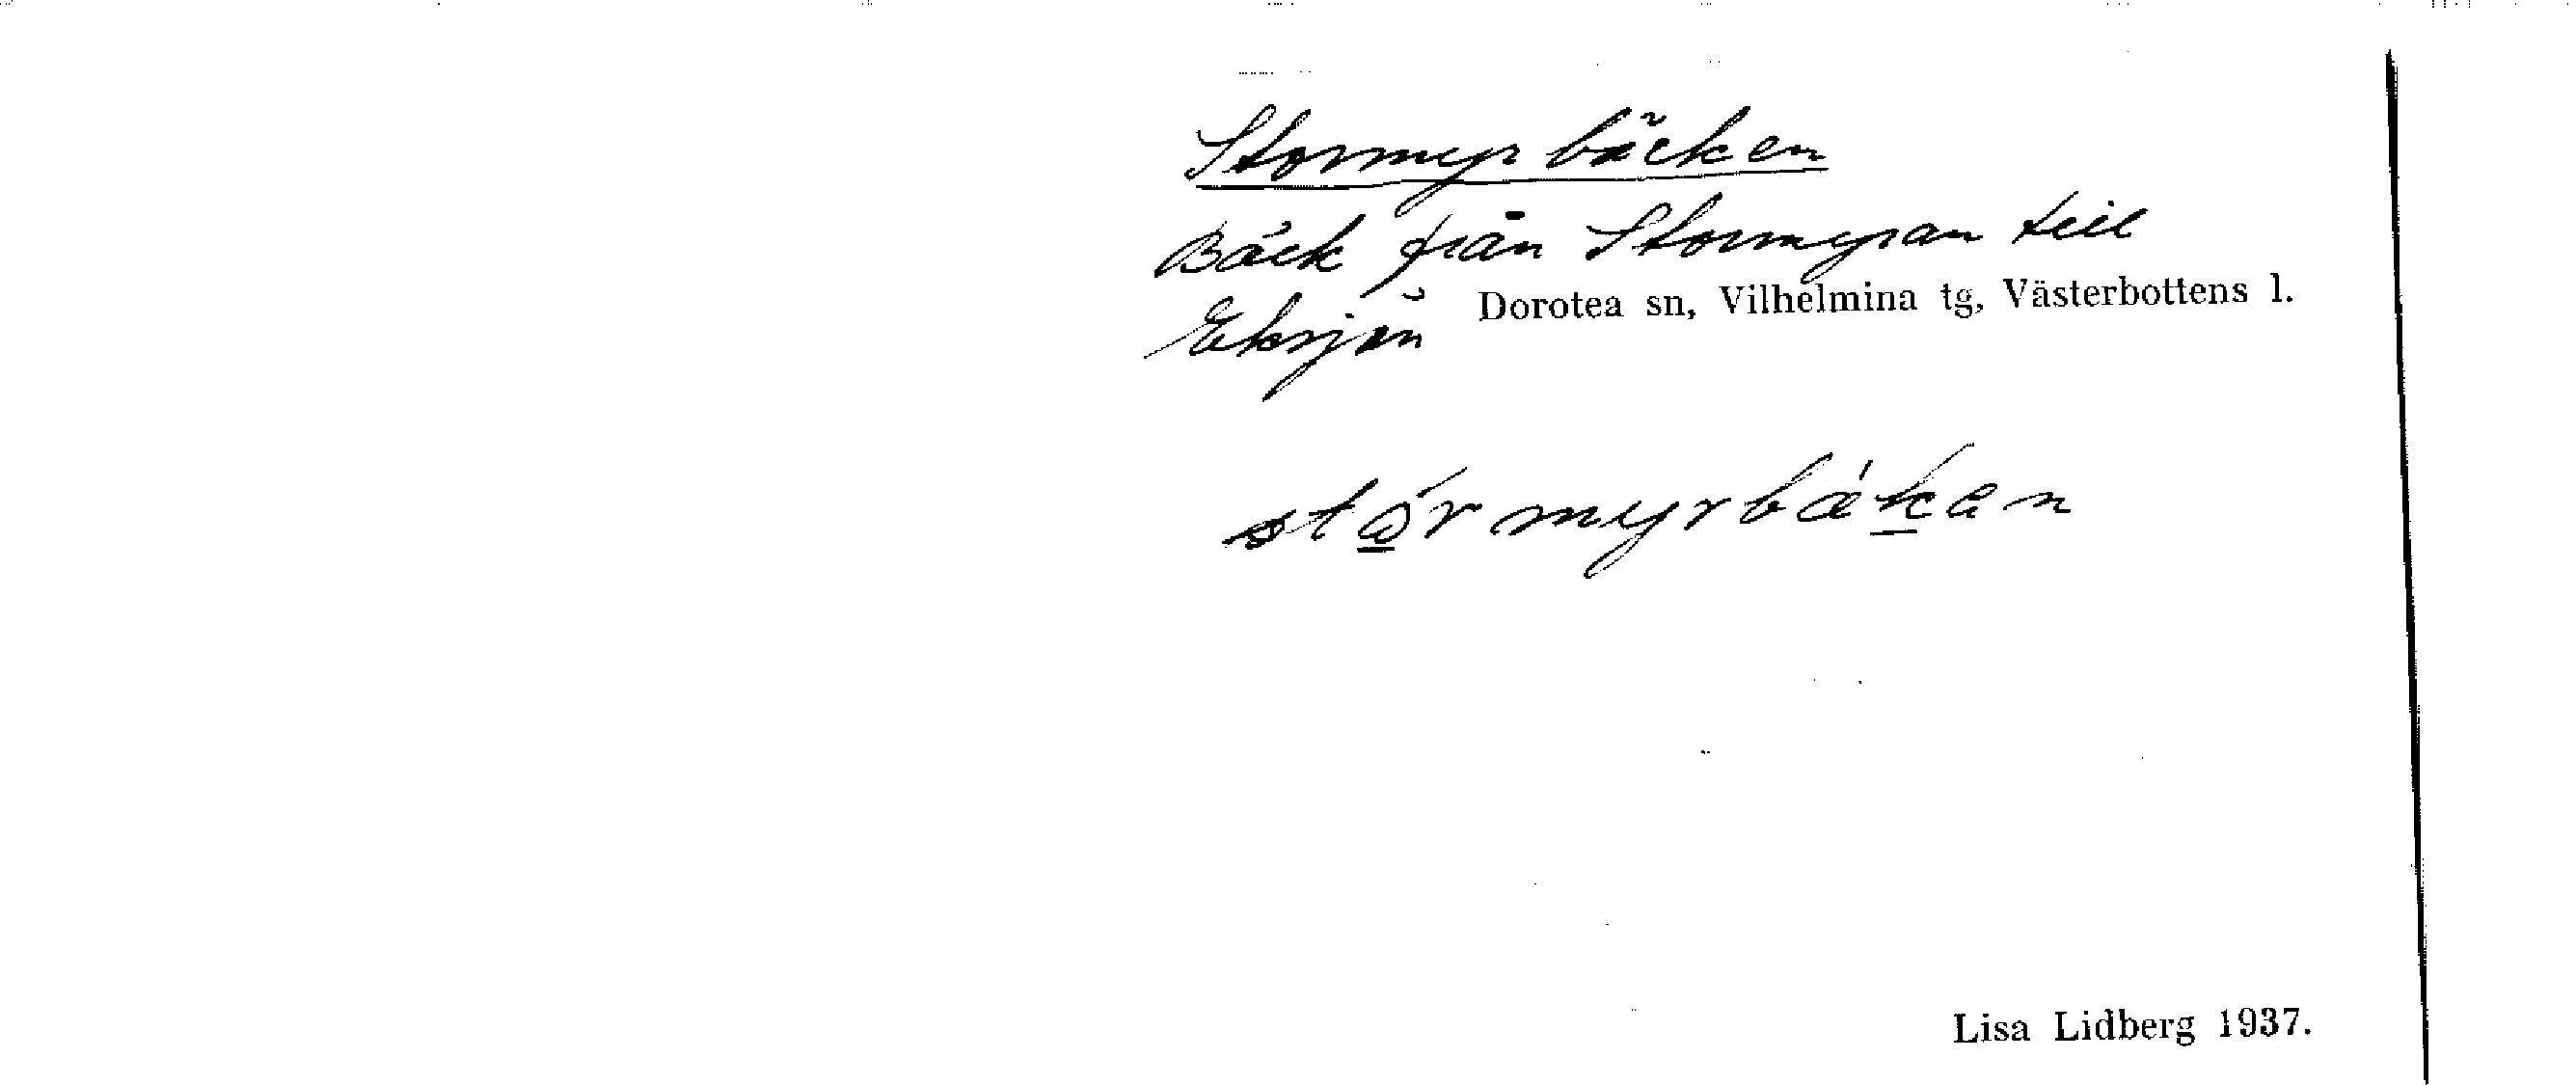 Stormyrbäcken
Bäck från Stormyran till
Eksjön Dorotea sn, Vilhelmina tg, Västerbottens l.
stǻrmyrbækan
Lisa Lidberg 1937.